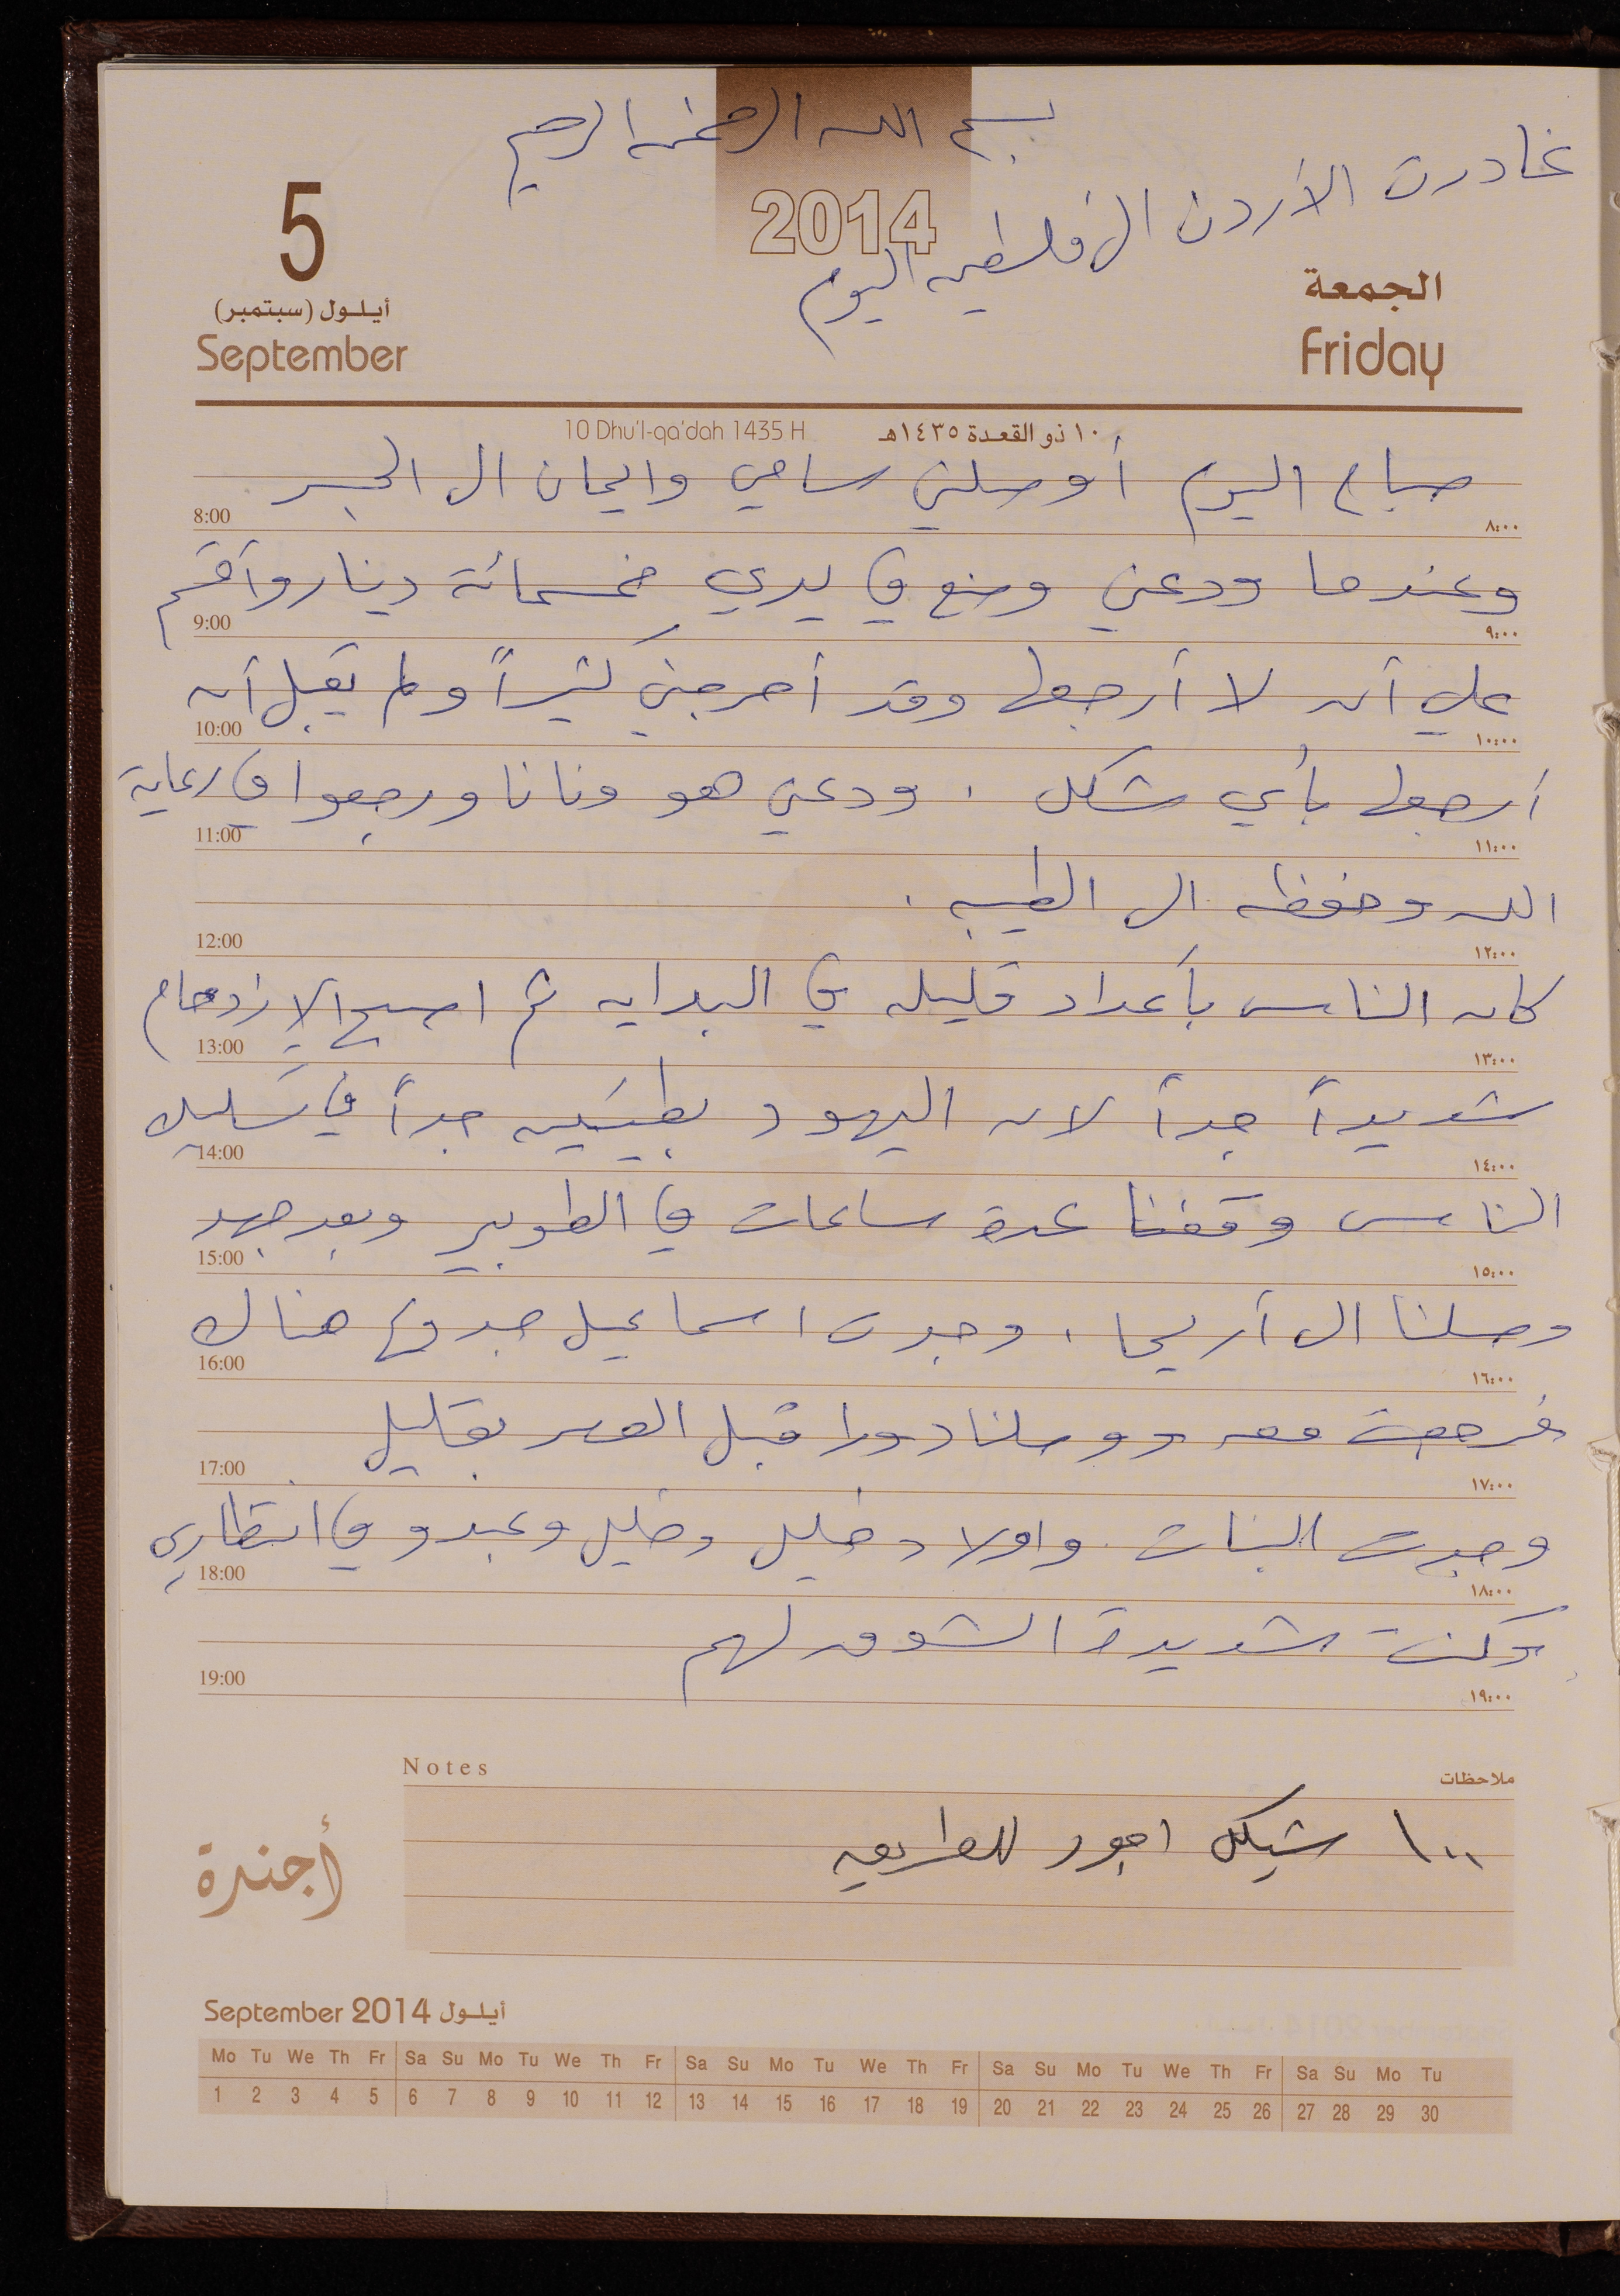 بسم الله الرحمن الرحيم
غادرت الأردن الى فلسطين اليوم
2014
5
أيلول (سبتمبر)
September
الجمعة
Friday
10 Dhu'l-qa'dah 1435 H ١٠ ذو القعدة ١٤٣٥هـ
صباح اليوم أوصلني سامي وايمان الى الجسر
8:00 ٨:٠٠
وعندما ودعني وضع في يدي خمسمائة دينار وأقسم
9:00 ٩:٠٠
علي أن لا أرجعها وقد أحرجني كثيراً ولم يقبل أن
10:00 ١٠:٠٠
أرجعها بأي شكل . ودعني هو ونانا ورجعوا في رعاية
11:00 ١١:٠٠
الله وحفظه الى الطيبه .
12:00 ١٢:٠٠
كان الناس بأعداد قليله في البدايه ثم اصبح الازدحام
13:00 ١٣:٠٠
شديداً جداً لان اليهود بطيئين جداً في تسليك
14:00 ١٤:٠٠
الناس وقفنا عدة ساعات في الطوابير وبعد جهد
15:00 ١٥:٠٠
وصلنا الى أريحا ، وجدت اسماعيل هناك
16:00 ١٦:٠٠
فرجعت معه ووصلنا دورا قبل العصر بقليل
17:00 ١٧:٠٠
وجدت البنات واولاد خليل وخليل وعبدو في انتظاري
18:00 ١٨:٠٠
وكنت شديدة الشوق لهم
19:00 ١٩:٠٠
Notes ملاحظات
١٠٠ شيكل اجور للطريق
أجندة
September 2014 أيلول
Mo Tu We Th Fr Sa Su Mo Tu We Th Fr Sa Su Mo Tu We Th Fr Sa Su Mo Tu We Th Fr Sa Su Mo Tu
1 2 3 4 5 6 7 8 9 10 11 12 13 14 15 16 17 18 19 20 21 22 23 24 25 26 27 28 29 30